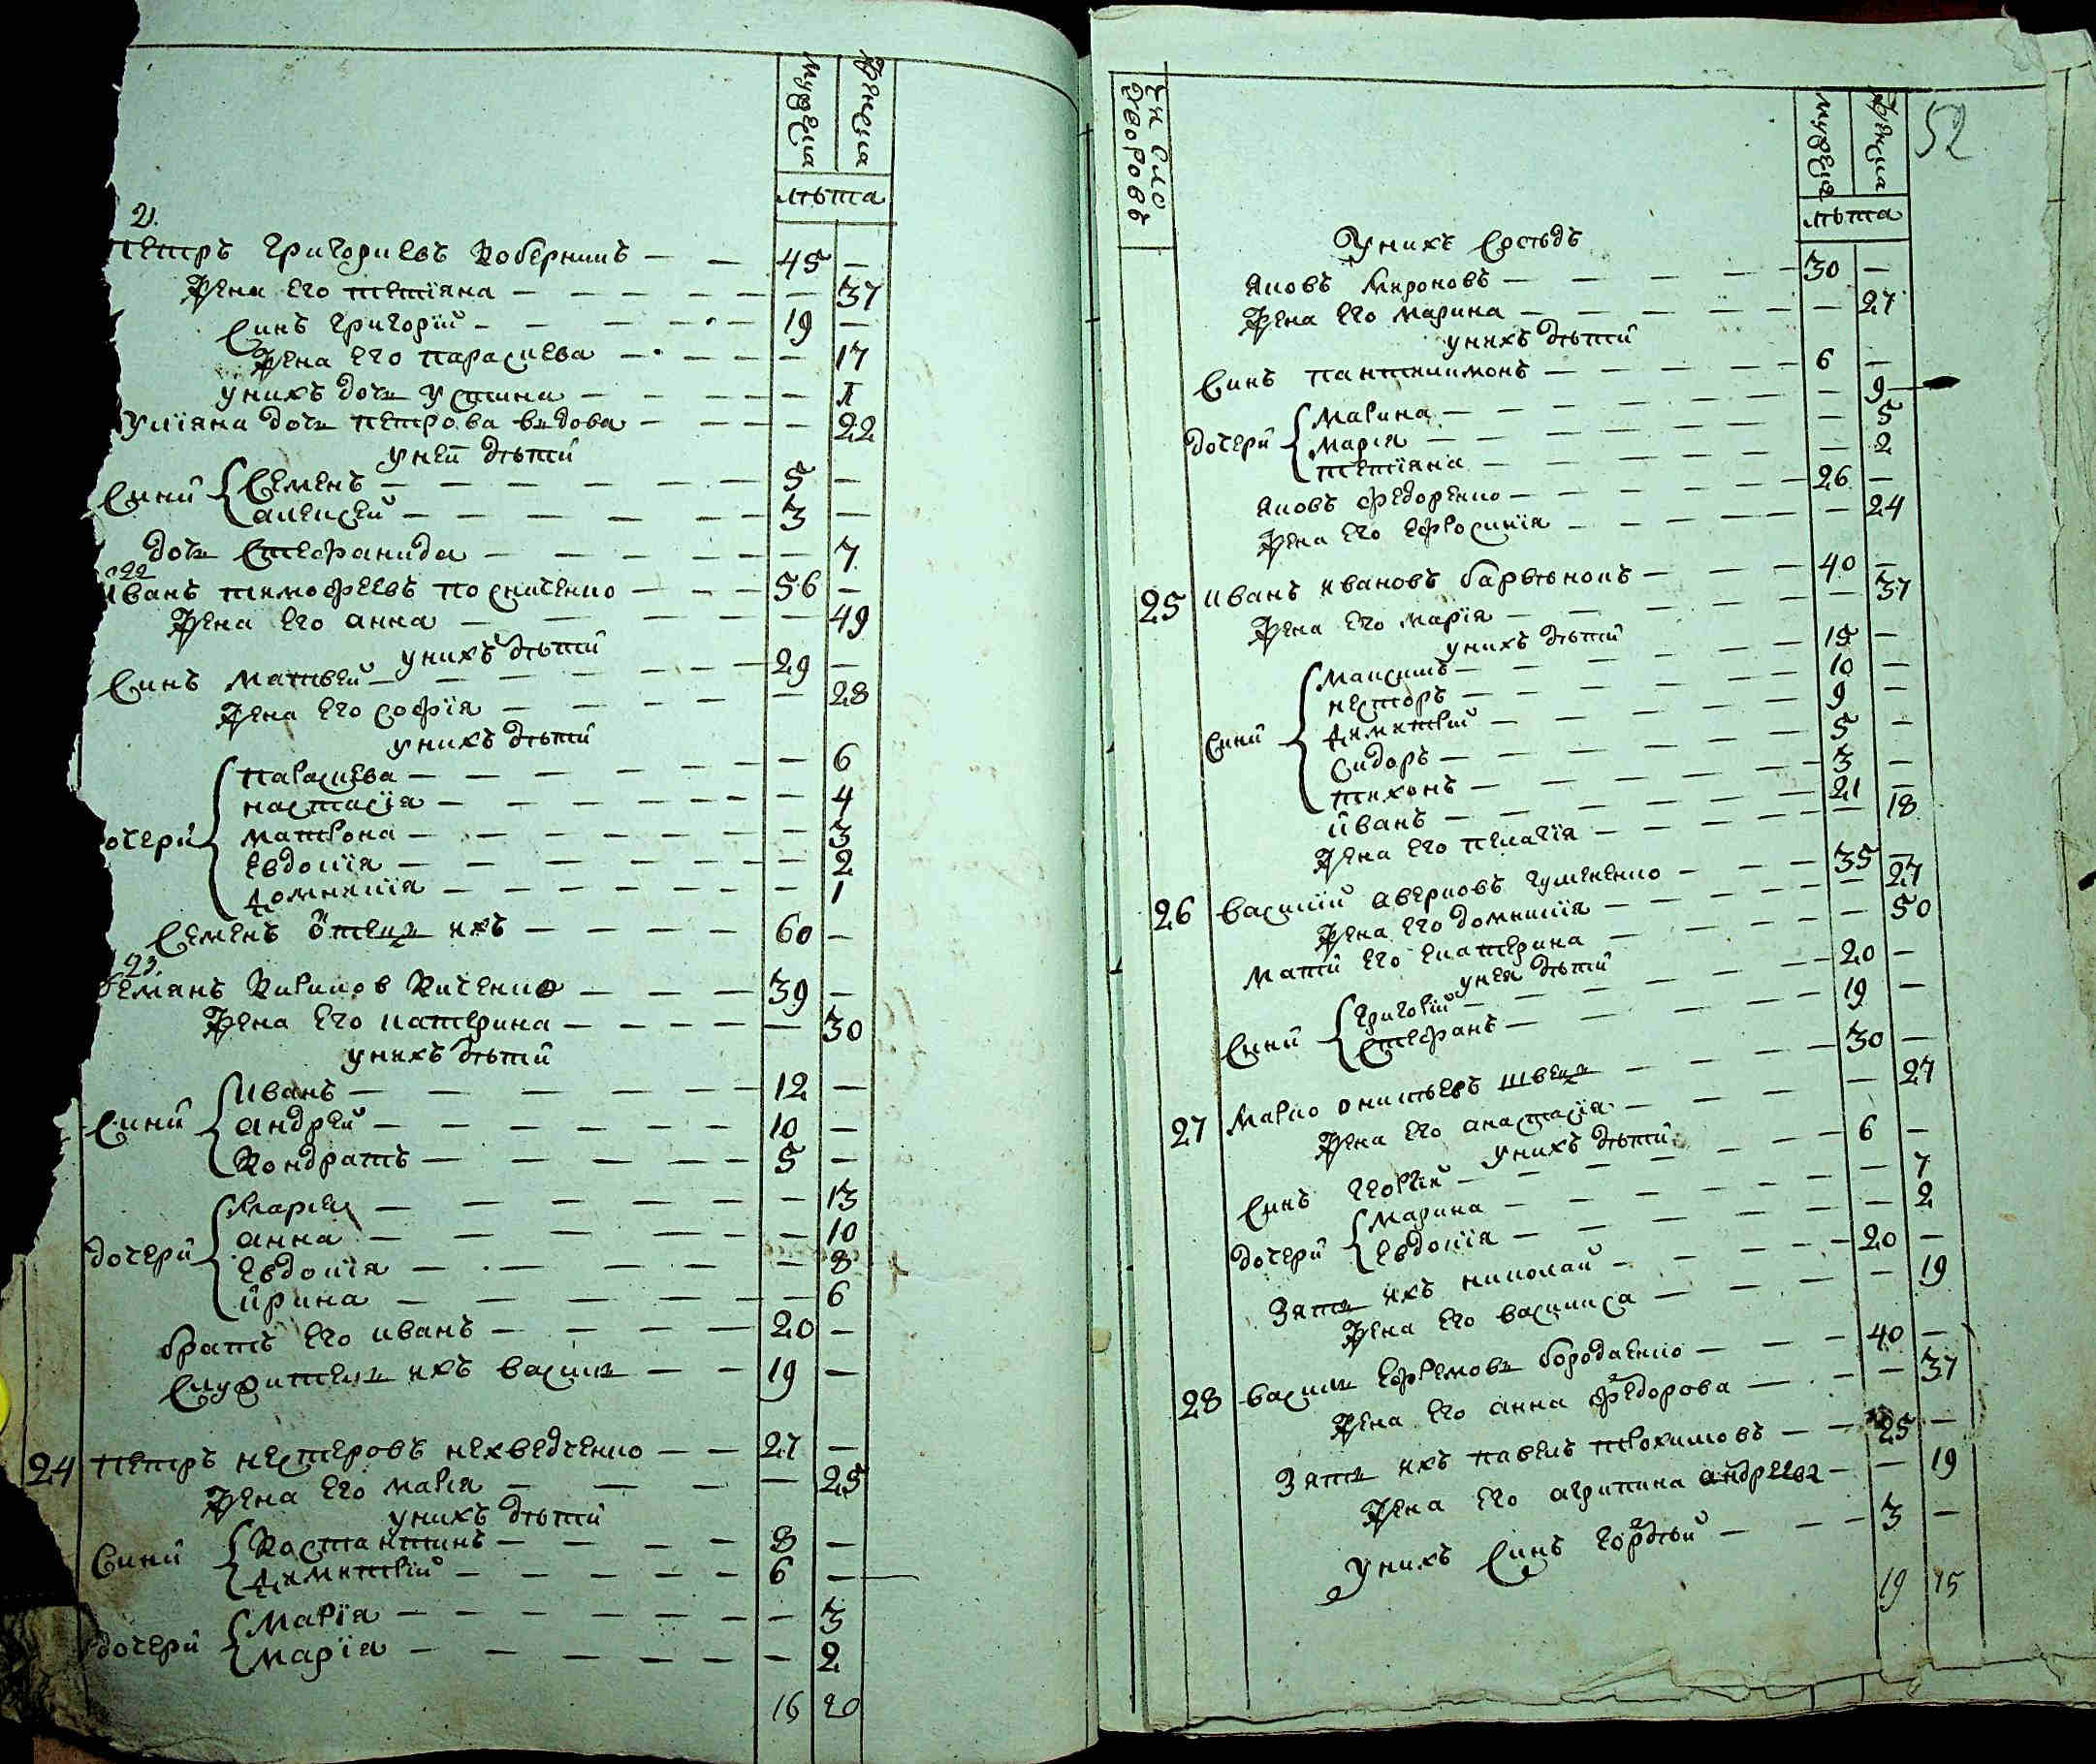 мужеска
женска
лѣта
21.
Петръ Григориевъ Коберникъ — — 45 —
Жена его Тетiяна — — — — — — 37
Синъ Григорiй — — — — — 19 —
Жена его Параскева — — — — — 17
у нихъ дочь Устина — — — — — 1
Улiяна дочь Петрова вдова — — — — 22
у ней дѣти
Сини { Семенъ — — — — — — 5 —
Алексей — — — — — — 3 —
дочь Стефанида — — — — — — 7
22
Иванъ Тимофеевъ Носниченко — — — 56 —
Жена его Анна — — — — — — 49
у нихъ дѣти
Синъ Матвей — — — — — — 29 —
Жена его Софiя — — — — — — 28
у нихъ дѣти
Параскева — — — — — — — 6
Настасiя — — — — — — — 4
очери { Матрона — — — — — — — 3
Евдокiя — — — — — — — 2
Домникiя — — — — — — — 1
Семенъ отецъ ихъ — — — — 60 —
23.
Демянъ Кирилов Киченко — — — 39 —
Жена его Катерина — — — — — — 30
у нихъ дѣти
Иванъ — — — — — — 12 —
Сини { Андрей — — — — — — 10 —
Кондратъ — — — — — 5 —
Марiя — — — — — — 13
Анна — — — — — — — 10
дочери { Евдокiя — — — — — — 8
Ирина — — — — — — 6
братъ его Иванъ — — — — — 20 —
Служитель ихъ Василь — — 19 —
24 Петръ Нестеровъ Нехведченко — — 27 —
Жена его Марiя — — — — — 25
у нихъ дѣти
Сини { Костантинъ — — — — 8 —
Димитрiй — — — — — 6 —
дочери { Марiя — — — — — — — 3
Марiя — — — — — — — 2
16 20
число дворовъ
мужеска
женска
52
лѣта
У нихъ Сосѣдъ
Яковъ Мироновъ — — — — — 30 —
Жена его Марина — — — — — — 27
у нихъ дѣти
Синъ Пантелимонъ — — — — — 6 —
Марина — — — — — — — 9
дочери { Марiя — — — — — — 5
Тетiяна — — — — — — 2
Яковъ Федоренко — — — — — 26 —
Жена его Ефросинiя — — — — — 24
25 Иванъ Ивановъ Барвѣнокъ — — — 40 —
Жена его Марiя — — — — — — 37
у нихъ дѣти
Максимъ — — — — — — 15 —
Несторъ — — — — — — 10 —
Сини { Димитрiй — — — — — 9 —
Сидоръ — — — — — — 5 —
Тихонъ — — — — — — 3 —
Иванъ — — — — — — 21 —
Жена его Пелагiя — — — — — 18
26 Василiй Аверковъ Гумененко — — — 35 —
Жена его Домникiя — — — — — 27
мати его Екатерина — — — — — 50
у нея дѣти
Сини { Григорiй — — — — — — 20 —
Стефанъ — — — — — — 19 —
27 Марко Онитѣевъ Швецъ — — — — 30 —
Жена его Анастасiя — — — — 27
у нихъ дѣти
Синъ Георгiй — — — — — — 6 —
дочери { Марина — — — — — — 7
Евдокiя — — — — — — 2
Зять ихъ Николай — — — — — 20 —
Жена его Василиса — — — — — 19
28 Василь Ефремовъ Бородаенко — — — 40 —
Жена его Анна Федорова — — — 37
Зять ихъ Павелъ Трохимовъ — — 25 —
Жена его Агрипина Андреева — — 19
У нихъ Синъ Гордѣй — — — 3 —
19 15